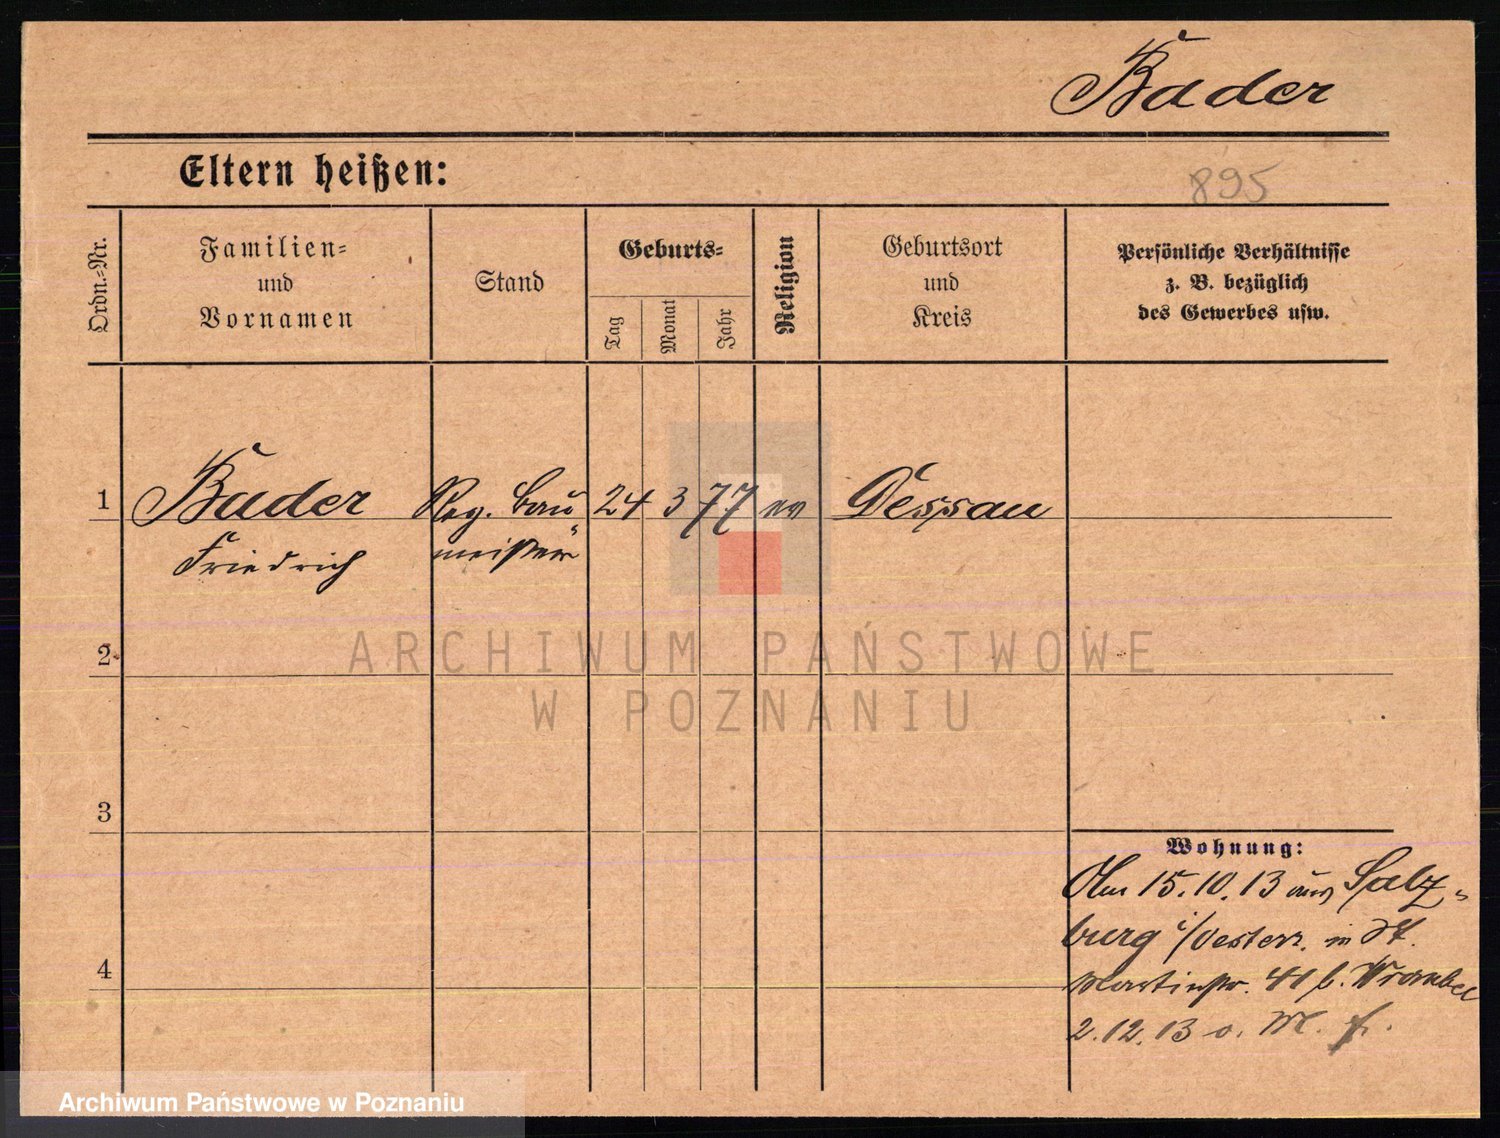 Bader
Eltern heißen:
895
Ordn.-Nr.
Familien-
und
Vornamen
Stand
Geburts-
Tag
Monat
Jahr
Religion
Geburtsort
und
Kreis
Persönliche Verhältnisse
z. B. bezüglich
des Gewerbes usw.
1 Bader Reg. Bau 24 3 77 ev Dessau
Friedrich meister
ARCHIWUM PAŃSTWOWE
W POZNANIU
2
3
4
Wohnung:
15.10.13 aus Salz-
burg i/Oesterr. in St.
Martinstr. 41 b.
2.12.13 o. M. f.
Archiwum Państwowe w Poznaniu